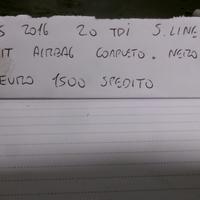 S 2016 2.0 TDI S.LINE
IT AIRBAG COMPLETO. NERO
EURO 1500 SPEDITO